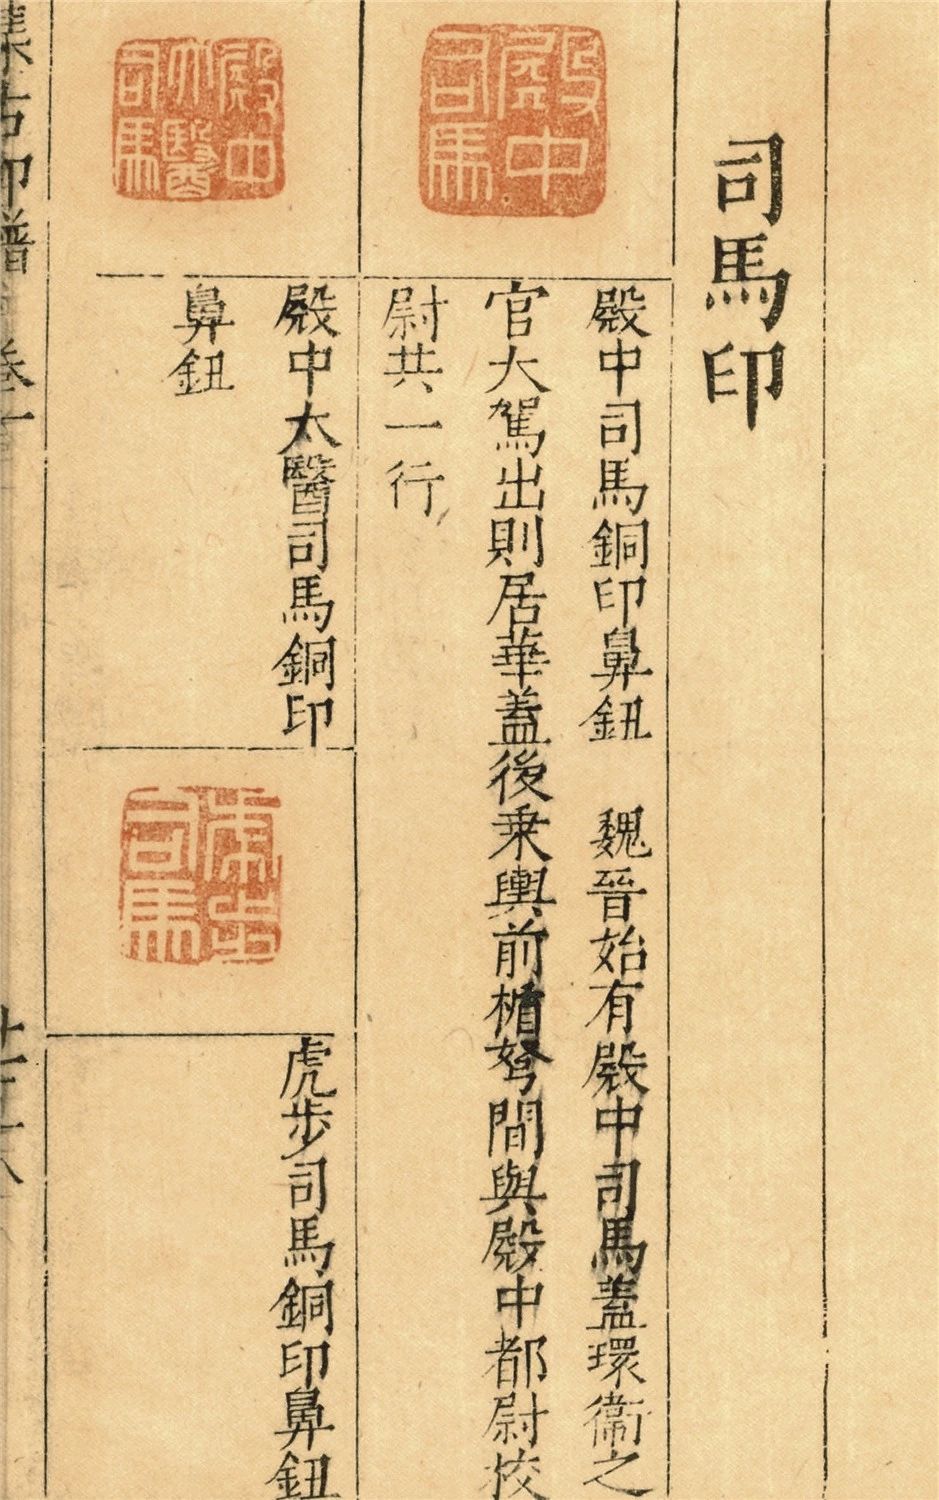 司馬印
殿中司馬
殿中司馬銅印鼻鈕 魏晉始有殿中司馬蓋環衞之
官大駕出則居華蓋後乗輿前楯弩間與殿中都尉校
尉共一行
殿中太醫司馬
殿中太醫司馬銅印
鼻鈕
虎步司馬
虎步司馬銅印鼻鈕
集古印譜 卷一